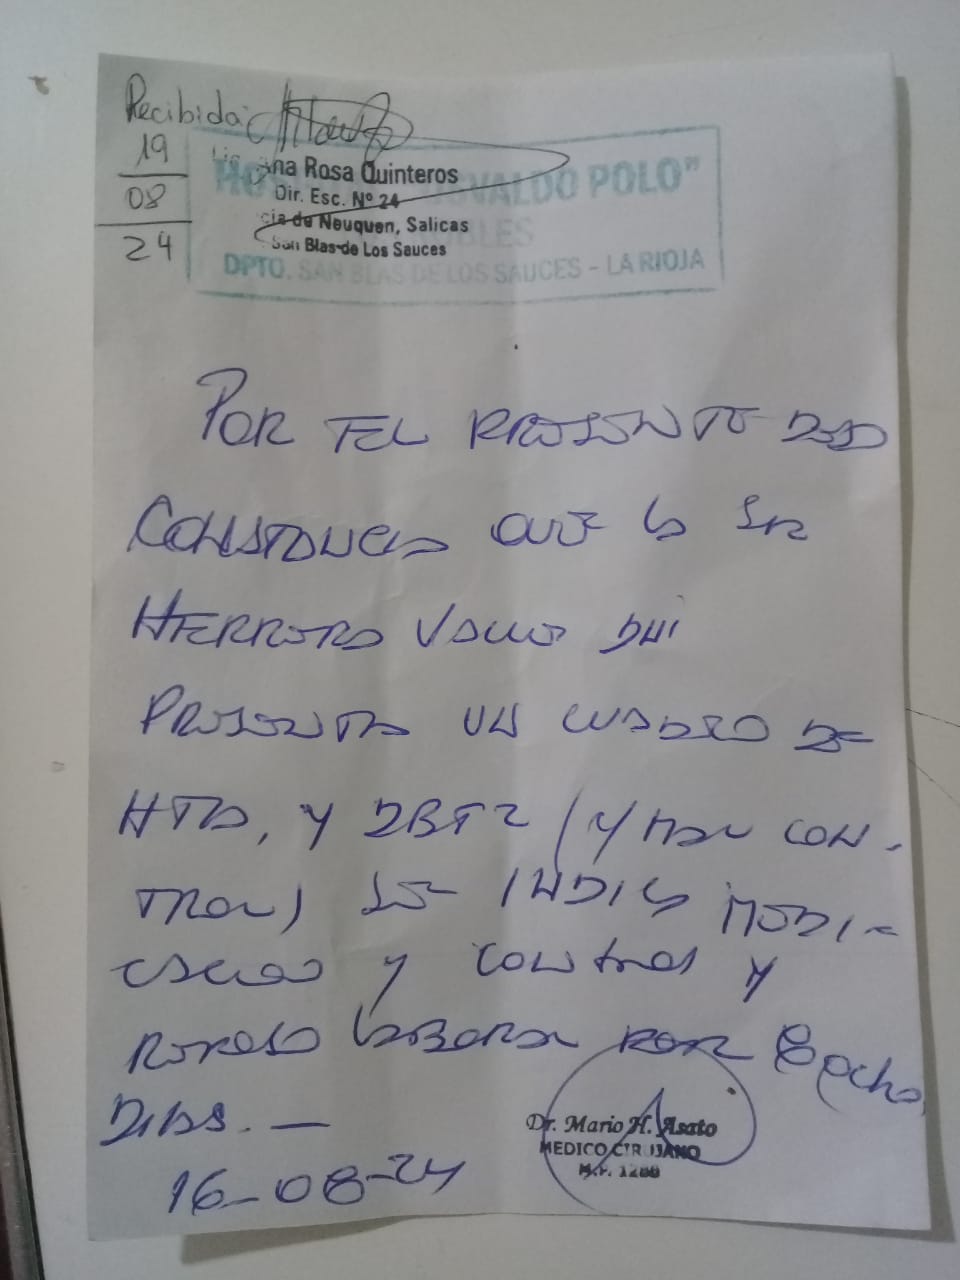 Recibida:
19
08
24
Lic. Ana Rosa Quinteros
Dir. Esc. Nº 24
cia de Neuquen, Salicas
San Blas de Los Sauces
HOSPITAL "OSVALDO POLO"
DPTO. SAN BLAS DE LOS SAUCES - LA RIOJA
POR EL PRESENTE DEJO
CONSTANCIA QUE LA SRA
HERRERA DNI
PRESENTA UN CUADRO DE
HTA, Y DBT2 (Y MAL CON-
TROL) SE INDICA MEDI-
CACION Y CONTROL Y
REPOSO LABORAL POR 8 Ocho
DIAS. —
16-08-24
Dr. Mario H. Asato
MEDICO CIRUJANO
M.P. 1288